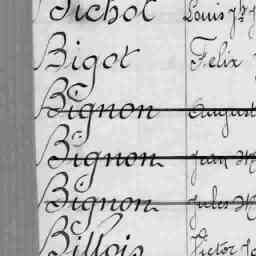 Pichot Louis Jh
Bigot Felix
Bignon August
Bignon Jean M
Bignon Jules M
Billois Victor J